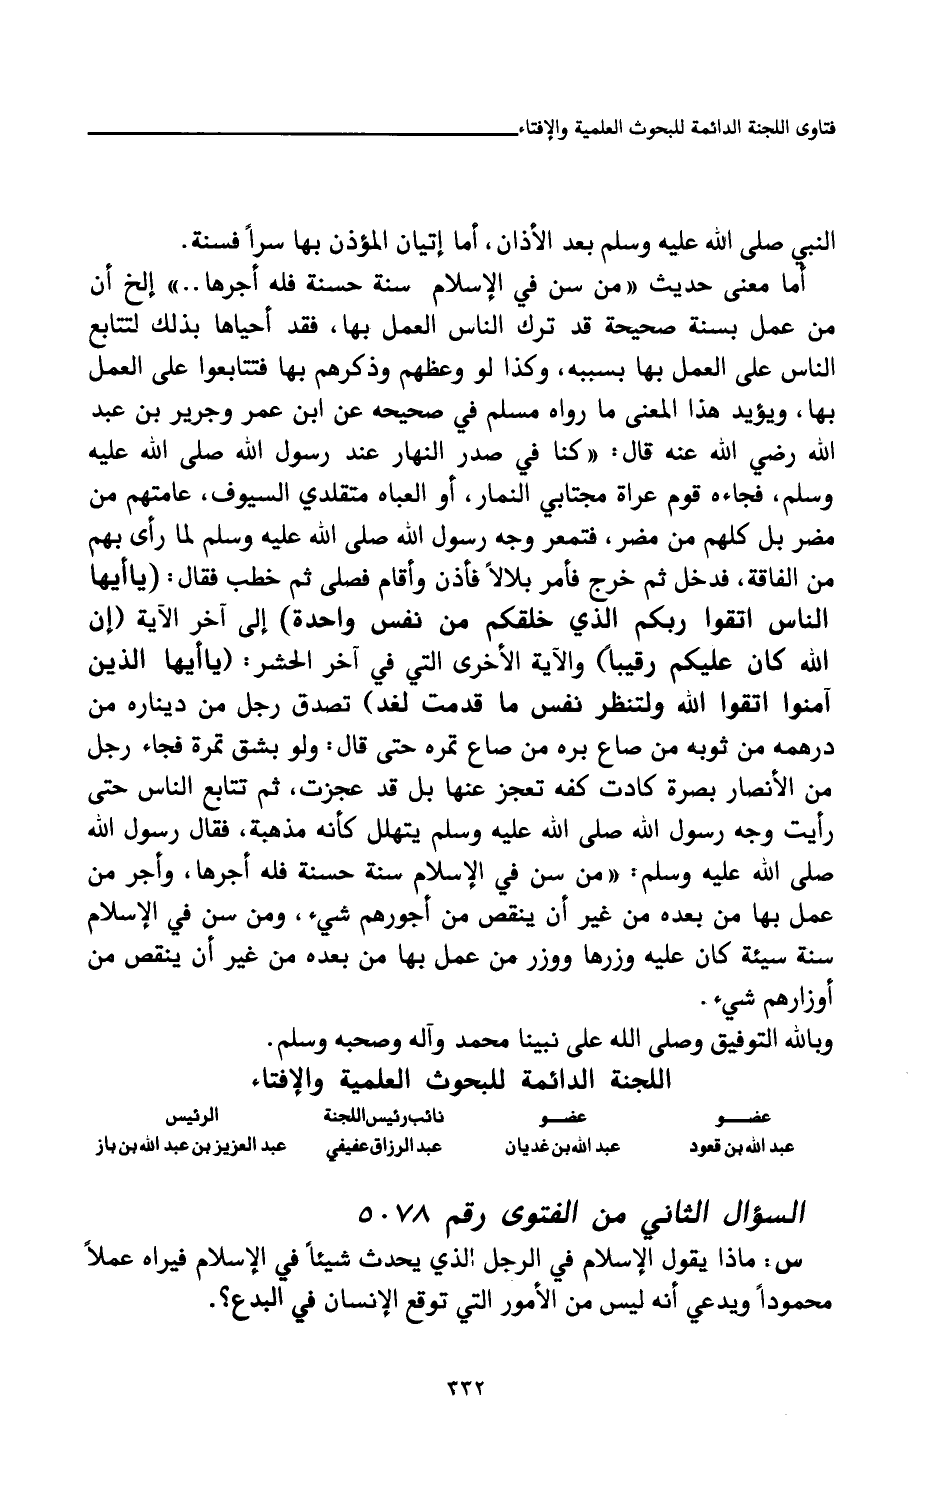 فتاوى اللجنة الدائمة للبحوث العلمية والإفتاء
النبي صلى الله عليه وسلم بعد الأذان، أما إتيان المؤذن بها سراً فسنة.
أما معنى حديث «من سن في الإسلام سنة حسنة فله أجرها..» إلخ أن
من عمل بسنة صحيحة قد ترك الناس العمل بها، فقد أحياها بذلك لتتابع
الناس على العمل بها بسببه، وكذا لو وعظهم وذكرهم بها فتتابعوا على العمل
بها، ويؤيد هذا المعنى ما رواه مسلم في صحيحه عن ابن عمر وجرير بن عبد
الله رضي الله عنه قال: «كنا في صدر النهار عند رسول الله صلى الله عليه
وسلم، فجاءه قوم عراة مجتابي النمار، أو العباه متقلدي السيوف، عامتهم من
مضر بل كلهم من مضر، فتمعر وجه رسول الله صلى الله عليه وسلم لما رأى بهم
من الفاقة، فدخل ثم خرج فأمر بلالاً فأذن وأقام فصلى ثم خطب فقال: (ياأيها
الناس اتقوا ربكم الذي خلقكم من نفس واحدة) إلى آخر الآية (إن
الله كان عليكم رقيباً) والآية الأخرى التي في آخر الحشر: (ياأيها الذين
آمنوا اتقوا الله ولتنظر نفس ما قدمت لغد) تصدق رجل من ديناره من
درهمه من ثوبه من صاع بره من صاع تمره حتى قال: ولو بشق تمرة فجاء رجل
من الأنصار بصرة كادت كفه تعجز عنها بل قد عجزت، ثم تتابع الناس حتى
رأيت وجه رسول الله صلى الله عليه وسلم يتهلل كأنه مذهبة، فقال رسول الله
صلى الله عليه وسلم: «من سن في الإسلام سنة حسنة فله أجرها، وأجر من
عمل بها من بعده من غير أن ينقص من أجورهم شيء، ومن سن في الإسلام
سنة سيئة كان عليه وزرها ووزر من عمل بها من بعده من غير أن ينقص من
أوزارهم شيء.
وبالله التوفيق وصلى الله على نبينا محمد وآله وصحبه وسلم.
اللجنة الدائمة للبحوث العلمية والإفتاء
عضـــو عضـــو نائب رئيس اللجنة الرئيس
عبد الله بن قعود عبد الله بن غديان عبد الرزاق عفيفي عبد العزيز بن عبد الله بن باز
السؤال الثاني من الفتوى رقم ٥٠٧٨
س: ماذا يقول الإسلام في الرجل الذي يحدث شيئاً في الإسلام فيراه عملاً
محموداً ويدعي أنه ليس من الأمور التي توقع الإنسان في البدع؟.
٣٣٢